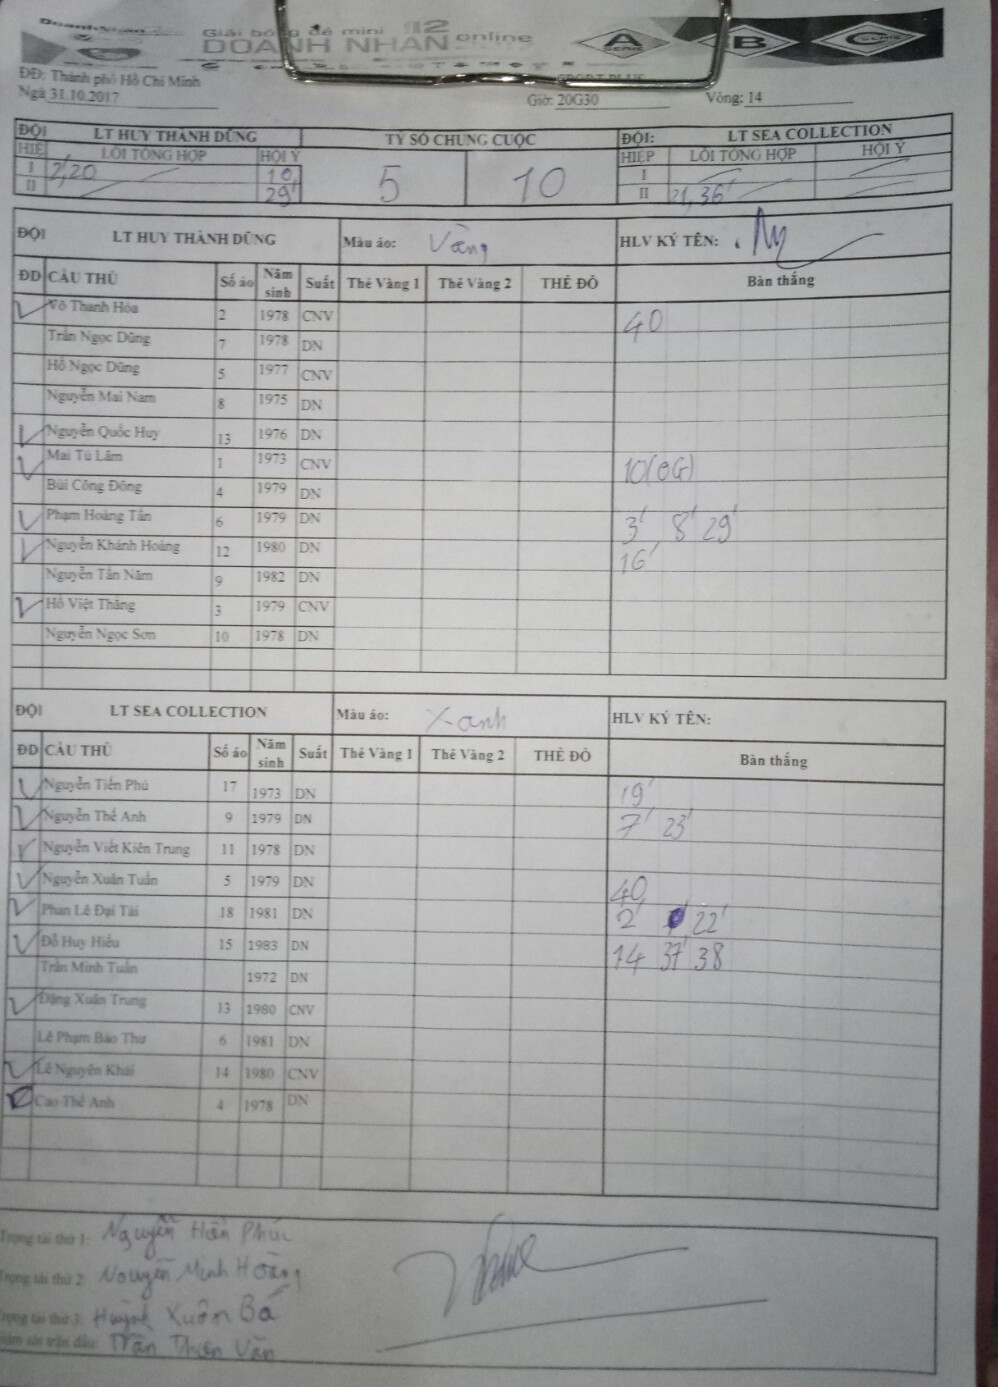 Giải bóng đá mini
DOANH NHÂN online
A SERIE B C SERIE
ĐĐ: Thành phố Hồ Chí Minh
Ngà 31.10.2017 Giờ: 20G30 Vòng: 14
ĐỘI LT HUY THÀNH DŨNG TỶ SỐ CHUNG CUỘC ĐỘI: LT SEA COLLECTION
HIỆP LỖI TỔNG HỢP HỘI Ý 5 10 HIỆP LỖI TỔNG HỢP HỘI Ý
I 2,20 10 I
II 29' II 21, 36'
ĐỘI LT HUY THÀNH DŨNG Màu áo: Vàng HLV KÝ TÊN:
ĐD CẦU THỦ Số áo Năm sinh Suất Thẻ Vàng 1 Thẻ Vàng 2 THẺ ĐỎ Bàn thắng
Võ Thanh Hóa 2 1978 CNV 40
Trần Ngọc Dũng 7 1978 DN
Hồ Ngọc Dũng 5 1977 CNV
Nguyễn Mai Nam 8 1975 DN
Nguyễn Quốc Huy 13 1976 DN
Mai Tú Lâm 1 1973 CNV 10(OG)
Bùi Công Đông 4 1979 DN
Phạm Hoàng Tấn 6 1979 DN 3' 8' 29'
Nguyễn Khánh Hoàng 12 1980 DN 16'
Nguyễn Tấn Năm 9 1982 DN
Hồ Việt Thắng 3 1979 CNV
Nguyễn Ngọc Sơn 10 1978 DN
ĐỘI LT SEA COLLECTION Màu áo: Xanh HLV KÝ TÊN:
ĐD CẦU THỦ Số áo Năm sinh Suất Thẻ Vàng 1 Thẻ Vàng 2 THẺ ĐỎ Bàn thắng
Nguyễn Tiến Phú 17 1973 DN 19'
Nguyễn Thế Anh 9 1979 DN 7' 23'
Nguyễn Viết Kiên Trung 11 1978 DN
Nguyễn Xuân Tuấn 5 1979 DN 40
Phan Lê Đại Tài 18 1981 DN 2' 22'
Đỗ Huy Hiếu 15 1983 DN 14 37' 38
Trần Minh Tuấn 1972 DN
Đặng Xuân Trung 13 1980 CNV
Lê Phạm Bảo Thư 6 1981 DN
Lê Nguyên Khải 14 1980 CNV
Cao Thế Anh 4 1978 DN
Trọng tài thứ 1: Nguyễn Hoàn Phúc
Trọng tài thứ 2: Nguyễn Minh Hoàng
Trọng tài thứ 3: Huỳnh Xuân Bá
Giám sát trận đấu: Trần Thiện Văn